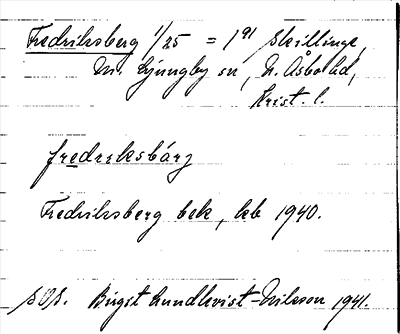 Fredriksberg 1/25 = 1⁹¹ Skillinge,
N. Ljungby sn, N. Åsbo hd,
Krist. l.
fredreksbárj
Fredriksberg bek, kb 1940.
Birgit Lundkvist-Nilsson 1941.